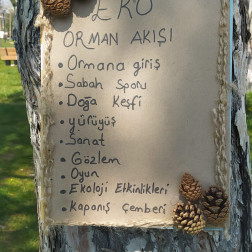 EKO
ORMAN AKIŞI
• Ormana giriş
• Sabah Sporu
• Doğa Keşfi
• yürüyüş
• Sanat
• Gözlem
• Oyun
• Ekoloji Etkinlikleri
• Kapanış Çemberi